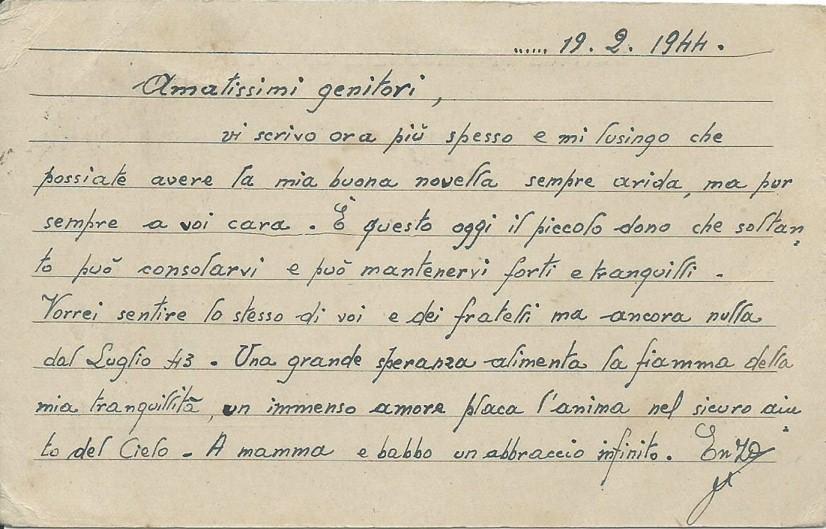 ...... 19. 2. 1944.
Amatissimi genitori,
vi scrivo ora più spesso e mi lusingo che
possiate avere la mia buona novella sempre arida, ma pur
sempre a voi cara. È questo oggi il piccolo dono che soltan=
to può consolarvi e può mantenervi forti e tranquilli -
Vorrei sentire lo stesso di voi e dei fratelli ma ancora nulla
dal Luglio 43 - Una grande speranza alimenta la fiamma della
mia tranquillità, un immenso amore placa l'anima nel sicuro aiu=
to del Cielo - A mamma e babbo un abbraccio infinito. Enzo